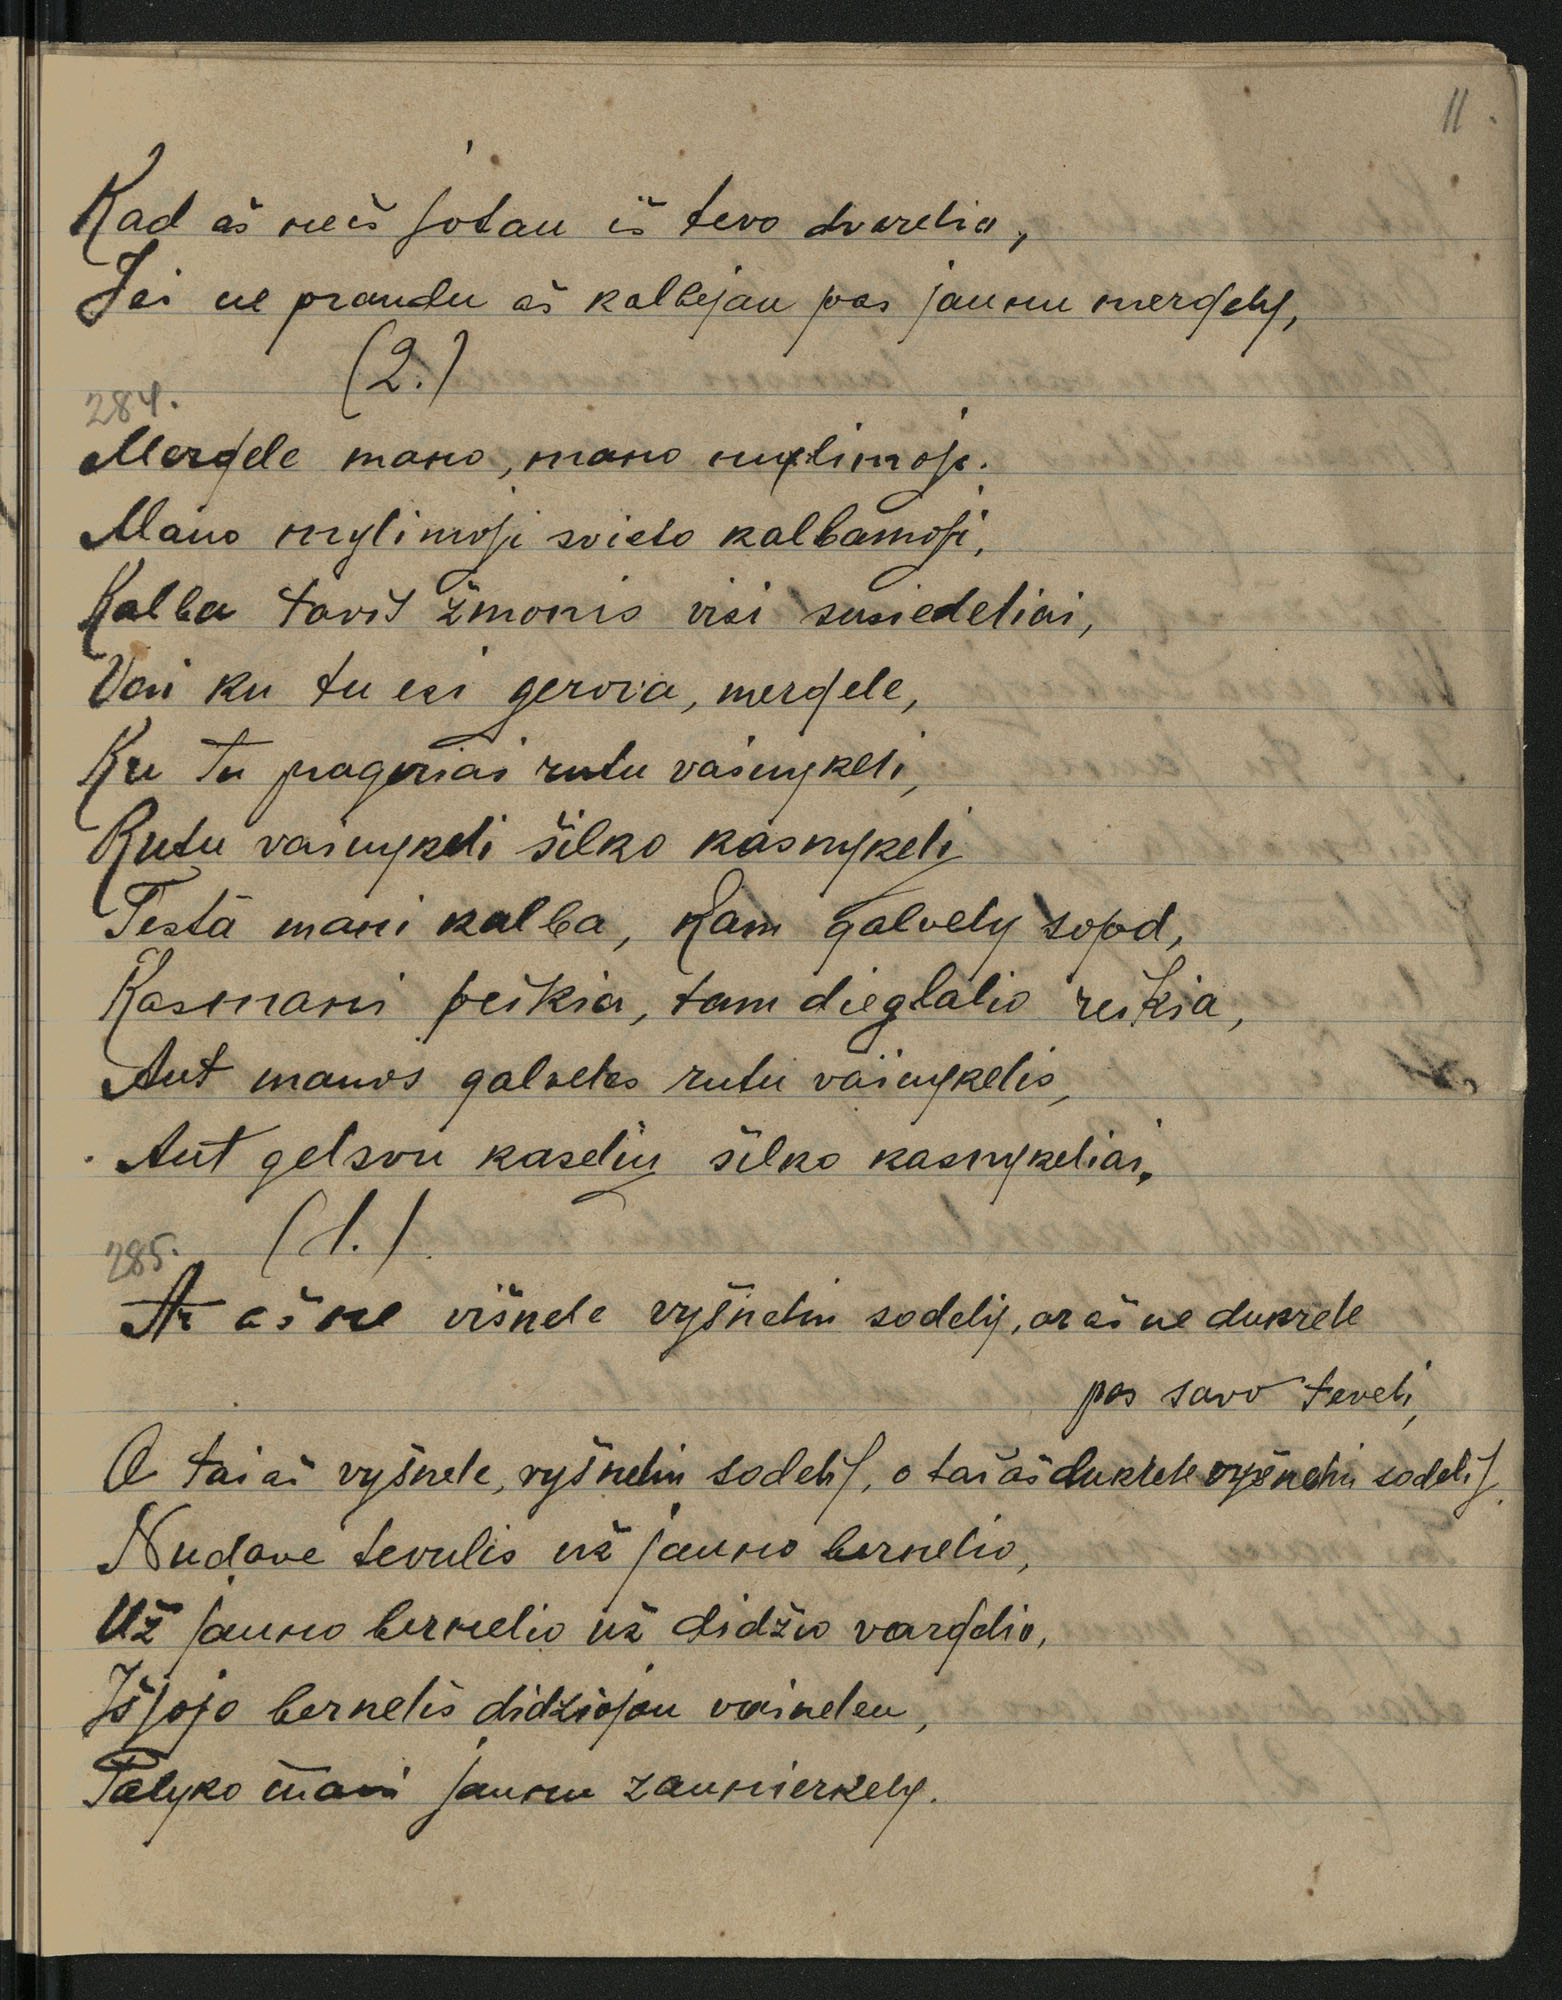 11.
Kad aš neiš jotau iš tevo dvarelio,
Jei ne praudu aš kalbejau pas jaunu mergely,
(2.)
284.
Mergele mano, mano mylimoji.
Mano mylimoji svieto kalbamoji,
Kalba tavis žmonis visi susiedeliai,
Vai ku tu esi gervia, mergele,
Ku tu prageriai rutu vainykeli,
Rutu vainykeli šilko kasnykeli
Testa mani kalba, kam galvely sopd,
Kasmani peikia, tam dieglalio reikia,
Ant manos galveles rutu vainykelis,
Ant gelsvu kaseliu šilko kasnykeliai.
(1.)
285.
Ar aš ne višnele vyšneliu sodely, ar aš ne dukrele
pas savo teveli,
O tai aš vyšnele, vyšneliu sodely, o tai aš dukrele vyšneliu sodely.
Nudave tevulis už jauno bernelio,
Už jauno bernelio už didžio vargelio,
Išjojo bernelis didžiojon vainelen,
Palyko mani jaunu zaunierkely.